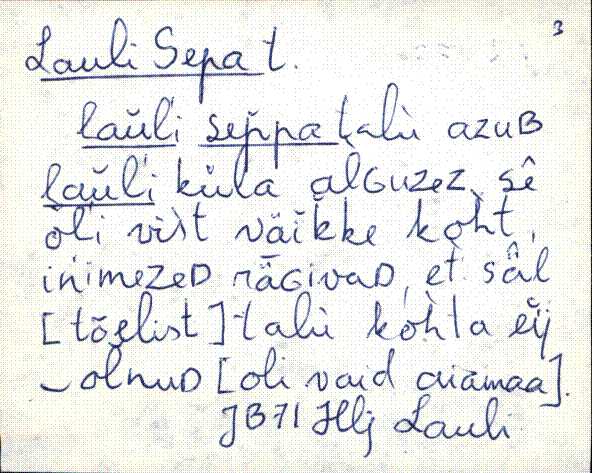 3
Lauli Sepa t.
lau̬l'i sep̆pa talù azuB
lau̬l'i kùla alGuzez, sê
ol'i vist väikke koht,
inimezeD räGivaD, et sâl
[tõelist] talu kohta eij
olnuD [oli vaid aiamaa].
JB71 Hlj Lauli